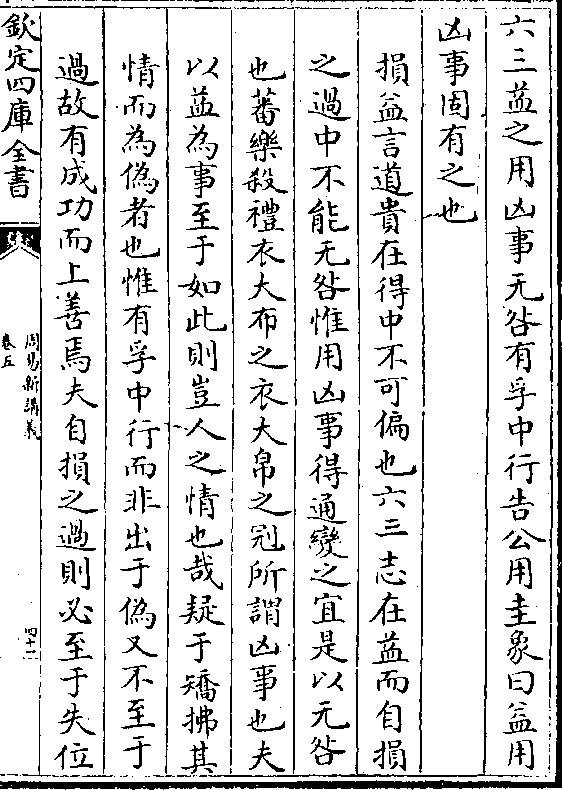 六三益之用凶事无咎有孚中行告公用圭象曰益用
凶事固有之也
損益言道貴在得中不可偏也六三志在益而自損
之過中不能无咎惟用凶事得通變之宜是以无咎
也蕃樂殺禮衣大布之衣大帛之冠所謂凶事也夫
以益為事至于如此則豈人之情也哉疑于矯拂其
情而為偽者也惟有孚中行而非出于偽又不至于
過故有成功而上善焉夫自損之過則必至于失位
欽定四庫全書
周易新講義
卷五
四十二